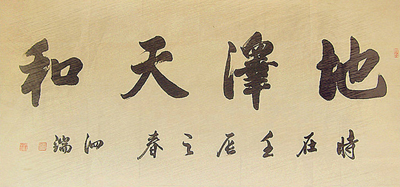 地澤天和
時在壬辰之春 泗端